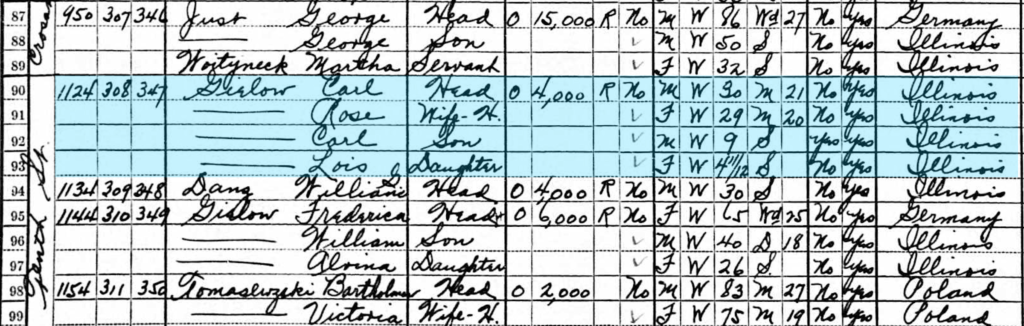 87 950 307 346 Just George Head O 15,000 R No M W 86 Wd 27 No yes Germany
88 George Son ✓ M W 50 S No yes Illinois
89 Woityneck Martha Servant ✓ F W 32 S No yes Illinois
90 1124 308 347 Gielow Carl Head O 4,000 R No M W 30 M 21 No yes Illinois
91 Rose Wife-H. ✓ F W 29 M 20 No yes Illinois
92 Carl Son ✓ M W 9 S yes yes Illinois
93 Lois Daughter ✓ F W 4 11/12 S No yes Illinois
94 1134 309 348 Dang William G Head O 4,000 R No M W 30 S No yes Illinois
95 1144 310 349 Gielow Frederica Head O 6,000 R No F W 65 Wd 25 No yes Germany
96 William Son ✓ M W 40 D 18 No yes Illinois
97 Alvina Daughter ✓ F W 26 S No yes Illinois
98 1154 311 350 Tomaszewski Head O 2,000 No M W 83 M 27 No yes Poland
99 Victoria Wife-H. ✓ F W 75 M 19 No yes Poland
Tenth St.